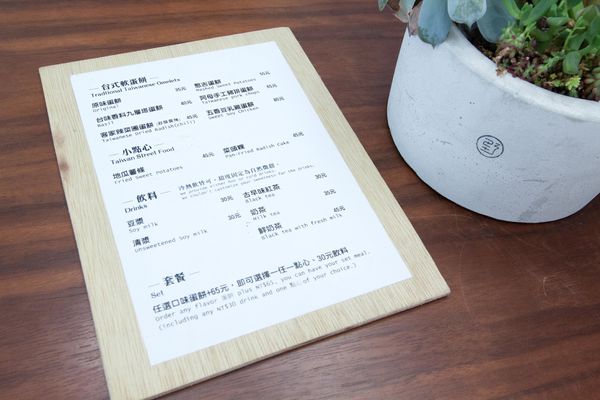 台式軟蛋餅
Traditional Taiwanese Omelets
原味蛋餅 35元
Original
台味香料九層塔蛋餅 40元
Basil
客家辣菜脯蛋餅 45元
Taiwanese Dried Radish(chili)
起吉蛋餅 55元
Mashed Sweet Potatoes
阿母手工豬排蛋餅 60元
Taiwanese pork chops
五香豆乳雞蛋餅 60元
Sweet Soy Chicken
小點心
Taiwan Street Food
地瓜薯條 45元
Fried Sweet Potatoes
菜頭粿 45元
Pan-fried Radish Cake
飲料
Drinks
we provide either hot or cold drinks.
we couldn't customize your sweetness for the drinks.
豆漿 30元
Soy milk
清漿 30元
unsweetened Soy milk
古早味紅茶 30元
Black tea
奶茶 35元
Milk tea
鮮奶茶 45元
Black tea with fresh milk
套餐
Set
任選口味蛋餅+65元, 即可選擇一任一點心、30元飲料
Order any flavor 蛋餅 plus NT$65, you can have your set meal.
(including any NT$30 drink and one 點心 of your choice.)